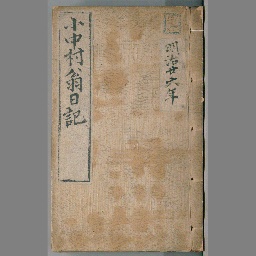 明治廿六年
小中村翁日記